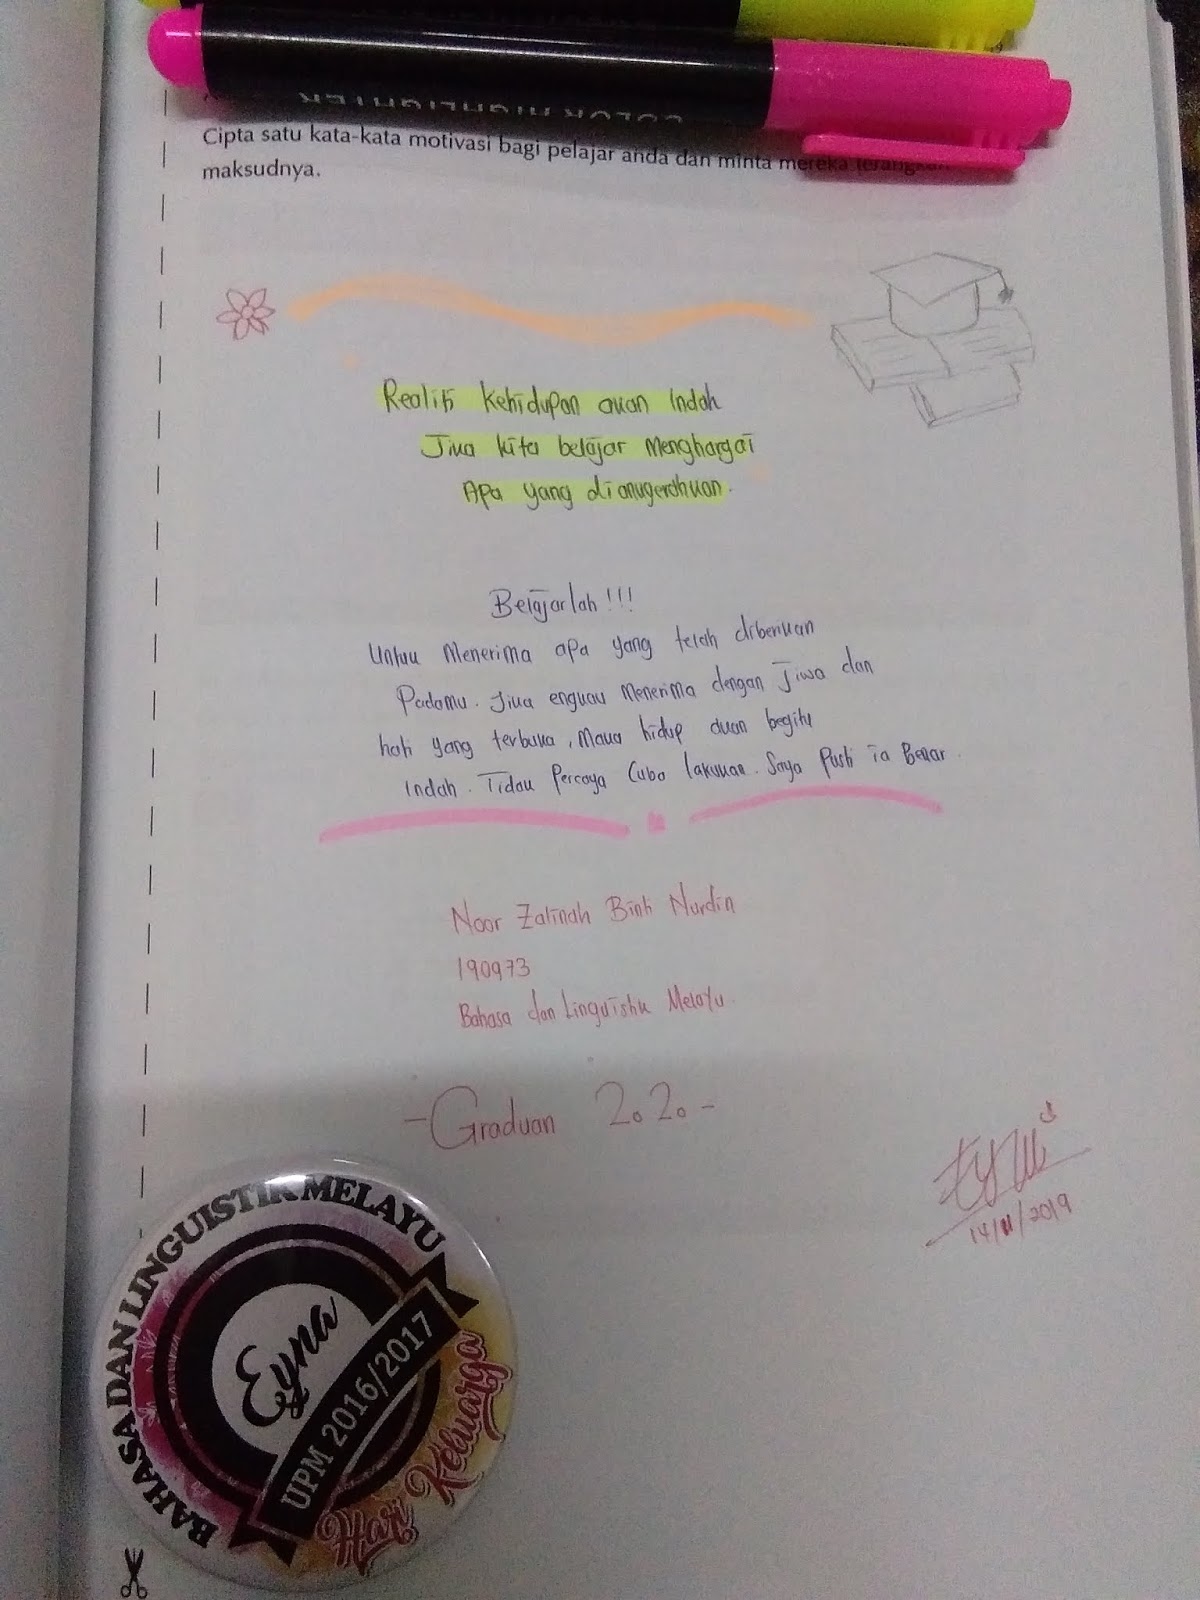 COLOR HIGHLIGHTER
Cipta satu kata-kata motivasi bagi pelajar anda dan minta mereka terangkan
maksudnya.
Realiti kehidupan akan Indah
Jika kita belajar Menghargai
Apa yang dianugerahkan.
Belajarlah!!!
Untuk Menerima apa yang telah diberikan
Padamu. Jika engkau Menerima dengan Jiwa dan
hati yang terbuka, Maka hidup akan begitu
Indah. Tidak Percaya Cuba lakukan. Saya Pasti ia Benar.
Noor Zalinah Binti Nurdin
190973
Bahasa dan Linguistik Melayu.
-Graduan 2020-
14/11/2019
BAHASA DAN LINGUISTIK MELAYU
Eyna
UPM 2016/2017
Hari Keluarga